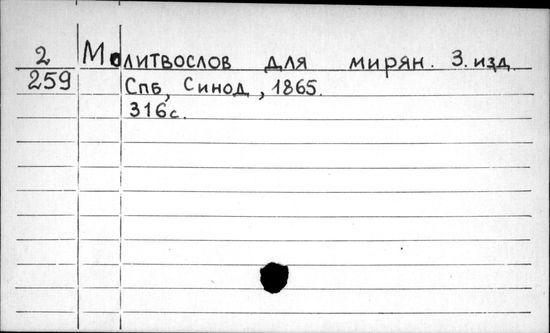 2 Молитвослов для мирян. 3. изд.
259 Спб, Синод, 1865.
316с.